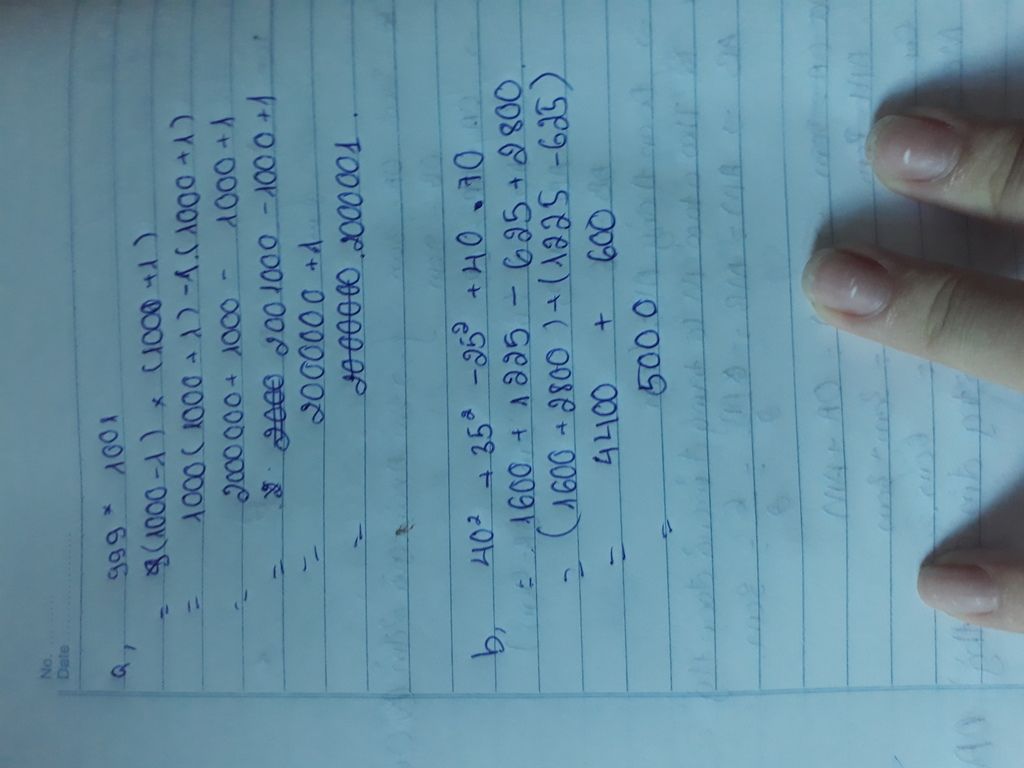 No.
Date
a, 999 × 1001
= (1000 - 1) × (1000 + 1)
= 1000(1000 + 1) - 1.(1000 + 1)
= 2000000 + 1000 - 1000 + 1
= 2001000 - 1000 + 1
= 200000 + 1
= 200001.
b, 40² + 35² - 25² + 40 . 70
= 1600 + 1225 - 625 + 2800
= (1600 + 2800) + (1225 - 625)
= 4400 + 600
= 5000